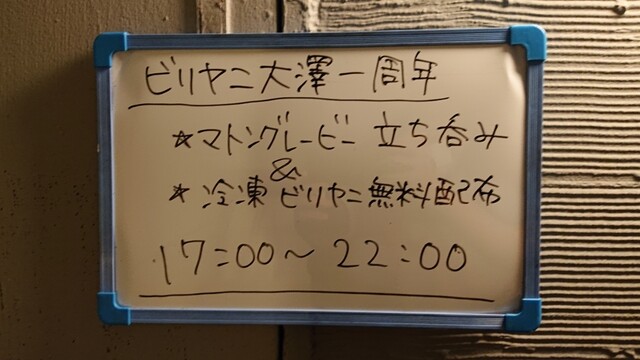 ビリヤニ大澤一周年
☆マトングレービー 立ち呑み
&
☆冷凍ビリヤニ無料配布
17:00～22:00